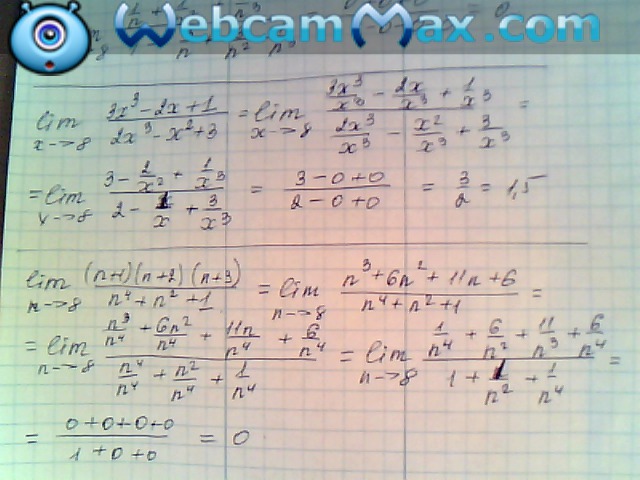 WebcamMax.com
lim x→8 (3x³ - 2x + 1)/(2x³ - x² + 3) = lim x→8 (3x³/x³ - 2x/x³ + 1/x³)/(2x³/x³ - x²/x³ + 3/x³) =
= lim x→8 (3 - 2/x² + 1/x³)/(2 - 1/x + 3/x³) = (3 - 0 + 0)/(2 - 0 + 0) = 3/2 = 1,5
lim n→8 (n+1)(n+2)(n+3)/(n⁴ + n² + 1) = lim n→8 (n³ + 6n² + 11n + 6)/(n⁴ + n² + 1) =
= lim n→8 (n³/n⁴ + 6n²/n⁴ + 11n/n⁴ + 6/n⁴)/(n⁴/n⁴ + n²/n⁴ + 1/n⁴) = lim n→8 (1/n⁴ + 6/n² + 11/n³ + 6/n⁴)/(1 + 1/n² + 1/n⁴) =
= (0+0+0+0)/(1+0+0) = 0